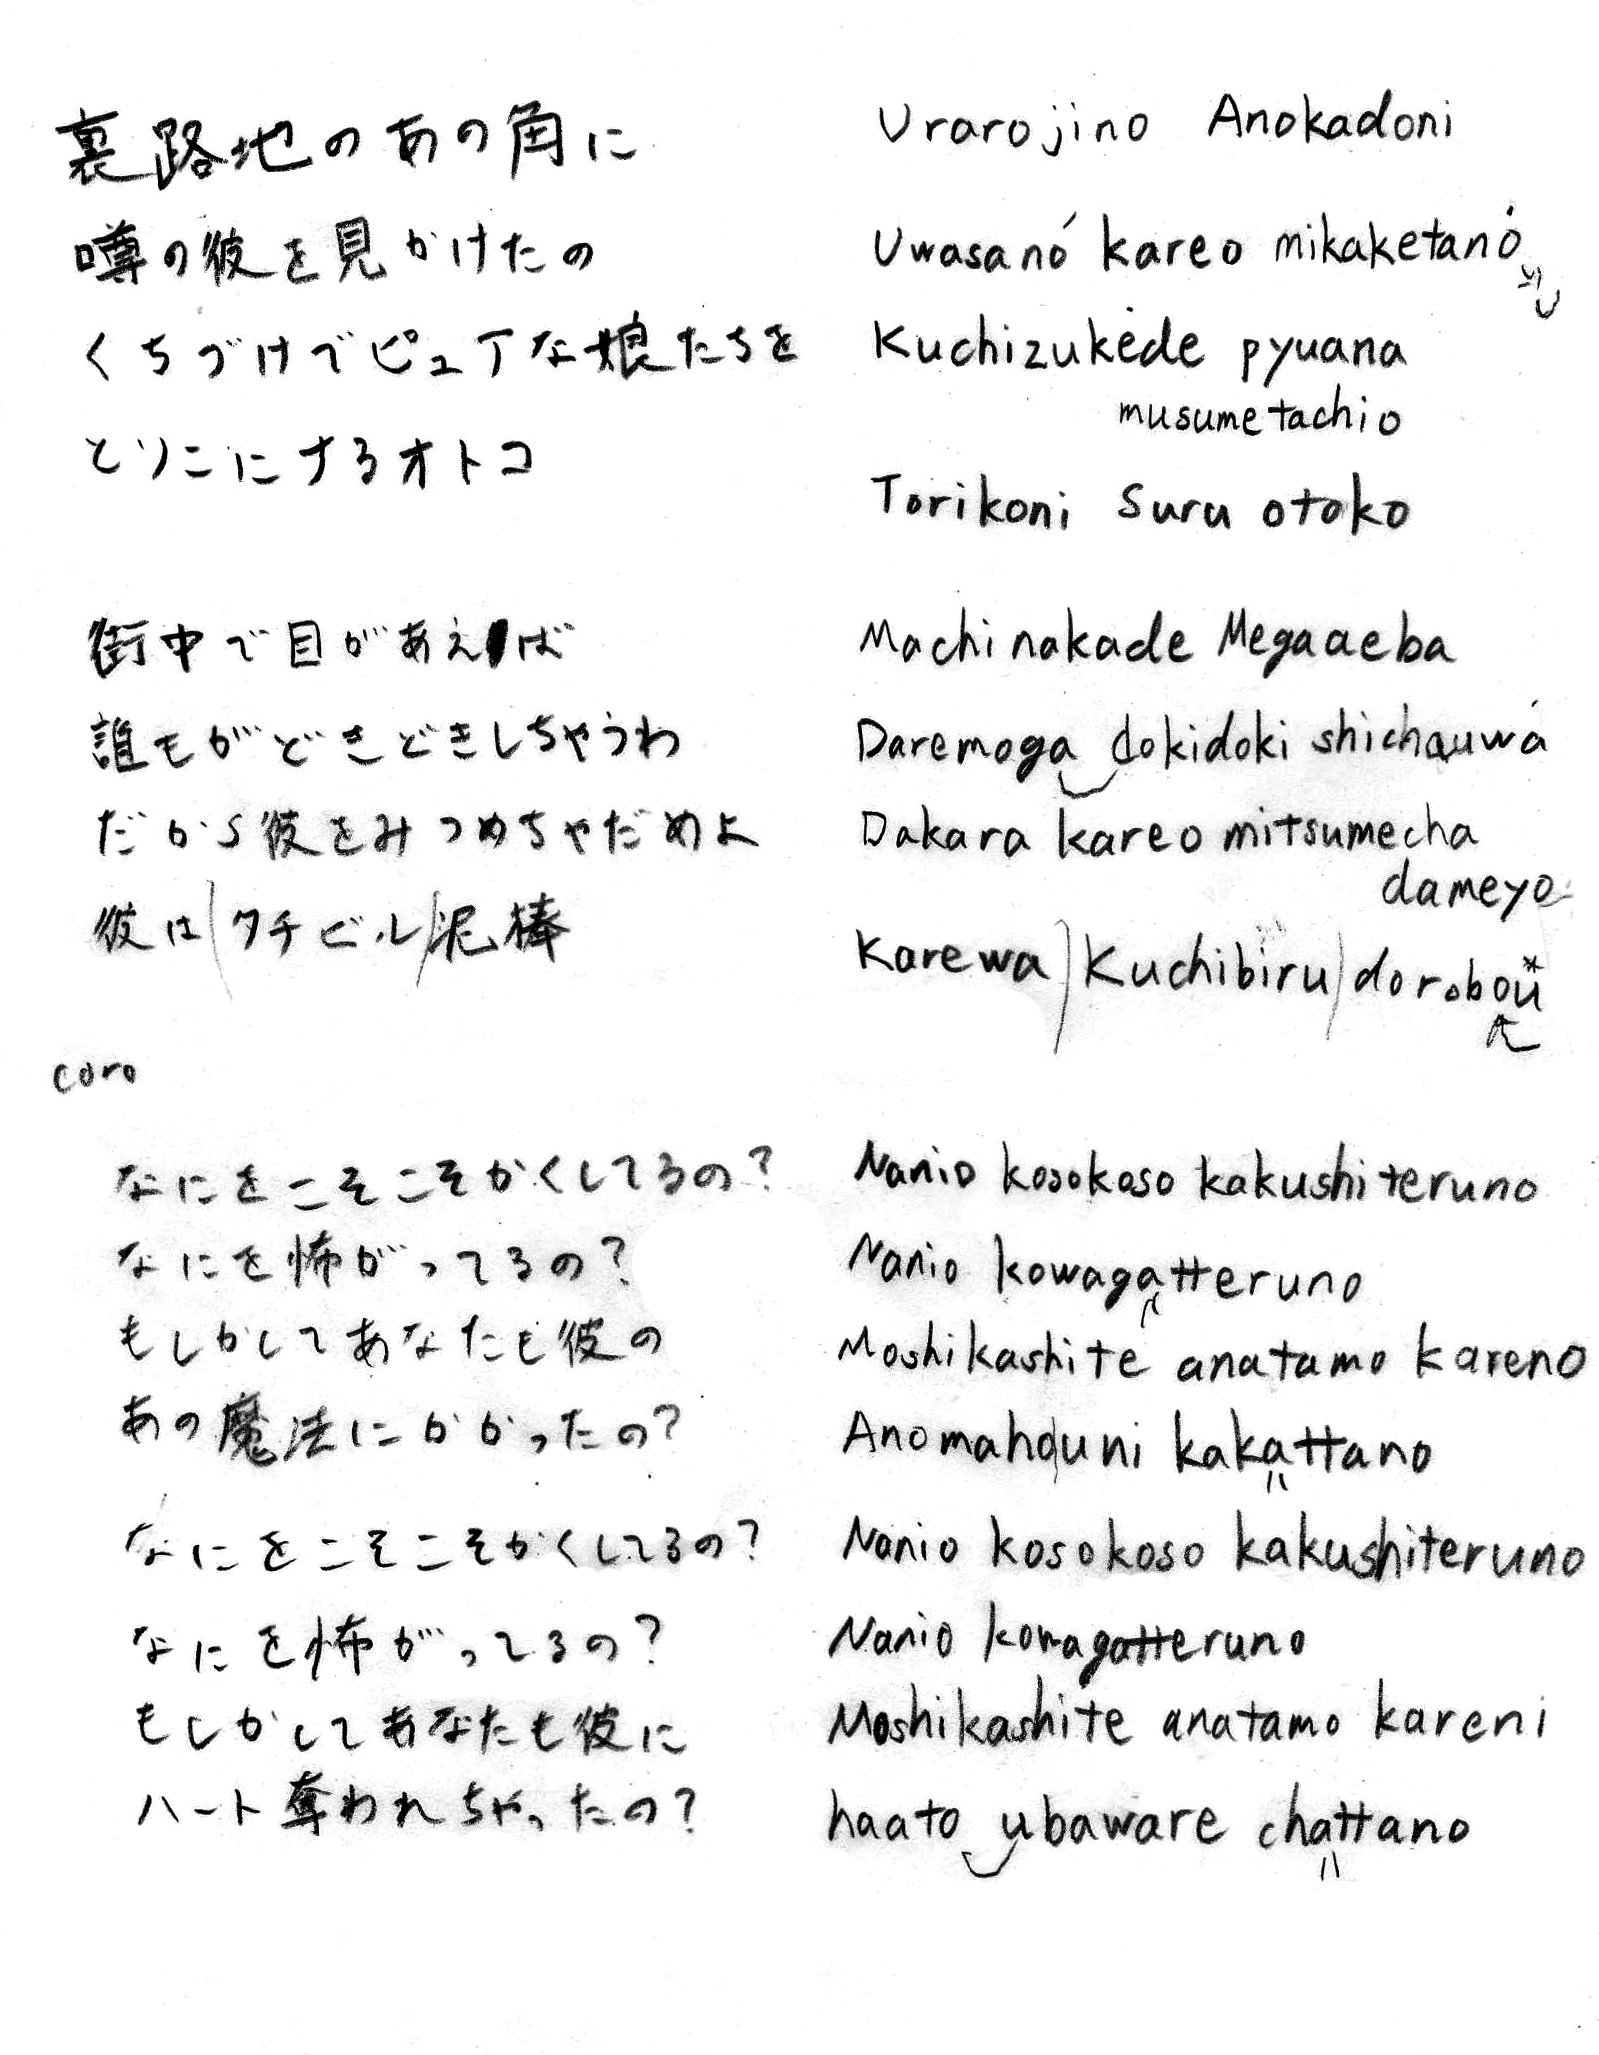 裏路地のあの角に
Urarojino Anokadoni
噂の彼を見かけたの
Uwasanó kareo mikaketanó
くちづけでピュアな娘たちを
Kuchizukede pyuana
musumetachio
とりこにするオトコ
Torikoni suru otoko
街中で目があえば
Machinakade Megaaeba
誰もがどきどきしちゃうわ
Daremoga dokidoki shichauwa
だから彼をみつめちゃだめよ
Dakara kareo mitsumecha
dameyo
彼は/クチビル/泥棒
Karewa/Kuchibiru/dorobou*
coro
なにをこそこそかくしてるの?
Nanio kosokoso kakushiteruno
なにを怖がってるの?
Nanio kowagatteruno
もしかしてあなたも彼の
Moshikashite anatamo kareno
あの魔法にかかったの?
Anomahouni kakattano
なにをこそこそかくしてるの?
Nanio kosokoso kakushiteruno
なにを怖がってるの?
Nanio kowagatteruno
もしかしてあなたも彼に
Moshikashite anatamo kareni
ハート奪われちゃったの?
haato ubaware chattano